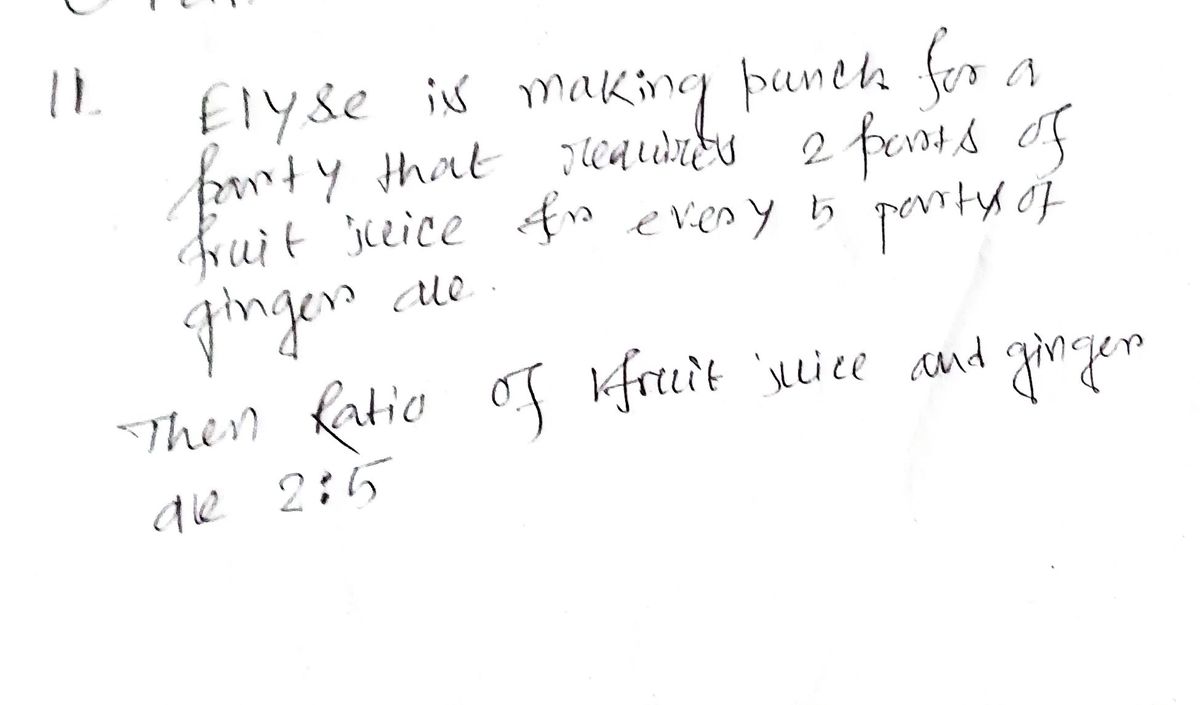 11. Elyse is making punch for a
party that requires 2 parts of
fruit juice for every 5 parts of
ginger ale.
Then Ratio of fruit juice and ginger
ale 2:5